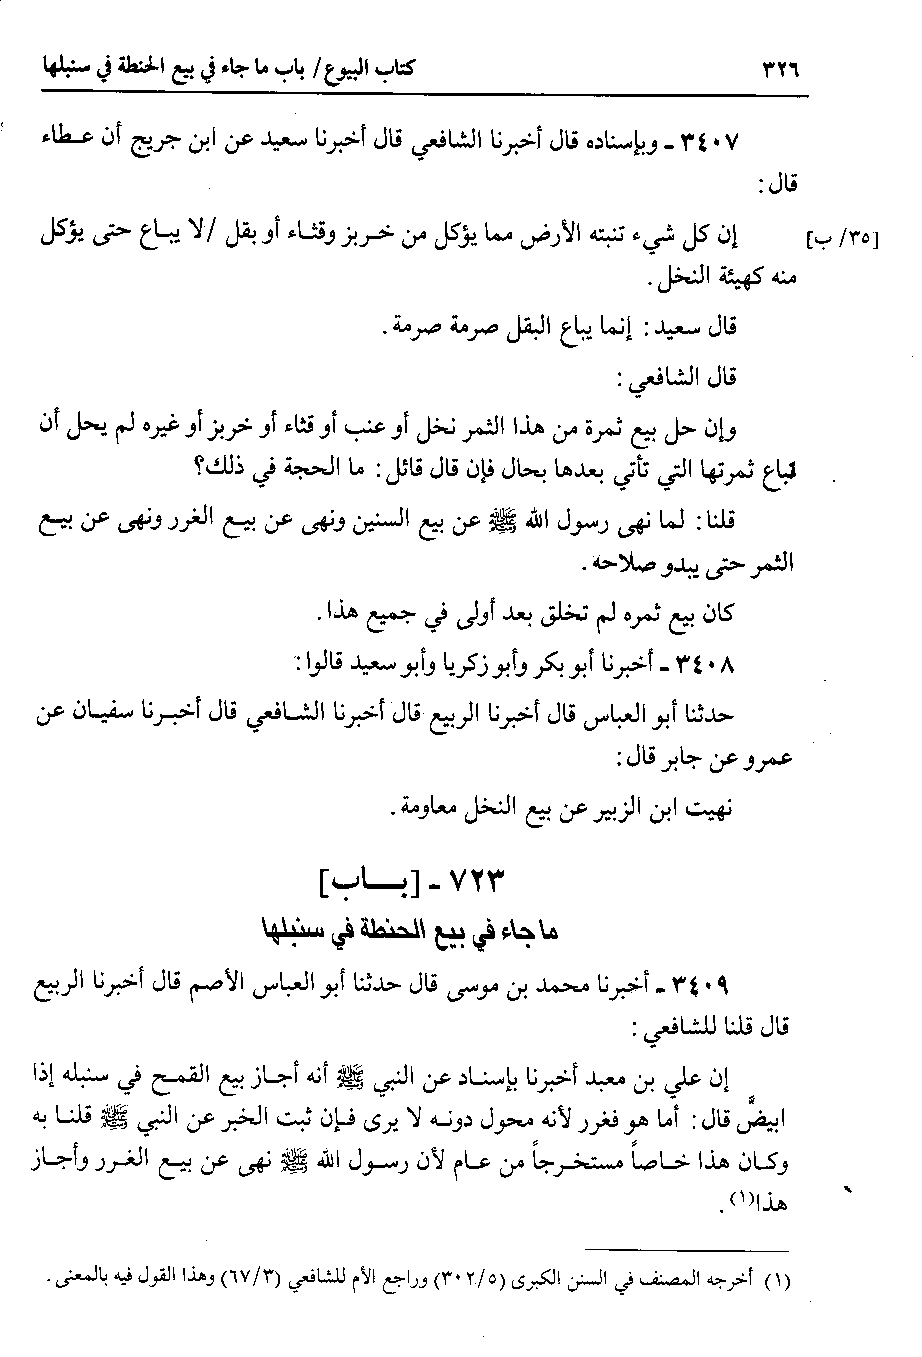 ٣٢٦ كتاب البيوع/ باب ما جاء في بيع الحنطة في سنبلها
٣٤٠٧ - وبإسناده قال أخبرنا الشافعي قال أخبرنا سعيد عن ابن جريج أن عطاء
قال:
[٣٥/ ب] إن كل شيء تنبته الأرض مما يؤكل من خربز وقثاء أو بقل /لا يباع حتى يؤكل
منه كهيئة النخل.
قال سعيد: إنما يباع البقل صرمة صرمة.
قال الشافعي:
وإن حل بيع ثمرة من هذا الثمر نخل أو عنب أو قثاء أو خربز أو غيره لم يحل أن
تباع ثمرتها التي تأتي بعدها بحال فإن قال قائل: ما الحجة في ذلك؟
قلنا: لما نهى رسول الله ﷺ عن بيع السنين ونهى عن بيع الغرر ونهى عن بيع
الثمر حتى يبدو صلاحه.
كان بيع ثمره لم تخلق بعد أولى في جميع هذا.
٣٤٠٨ - أخبرنا أبو بكر وأبو زكريا وأبو سعيد قالوا:
حدثنا أبو العباس قال أخبرنا الربيع قال أخبرنا الشافعي قال أخبرنا سفيان عن
عمرو عن جابر قال:
نهيت ابن الزبير عن بيع النخل معاومة.
٧٢٣ - [باب]
ما جاء في بيع الحنطة في سنبلها
٣٤٠٩ - أخبرنا محمد بن موسى قال حدثنا أبو العباس الأصم قال أخبرنا الربيع
قال قلنا للشافعي:
إن علي بن معبد أخبرنا بإسناد عن النبي ﷺ أنه أجاز بيع القمح في سنبله إذا
ابيضَّ قال: أما هو فغرر لأنه محول دونه لا يرى فإن ثبت الخبر عن النبي ﷺ قلنا به
وكان هذا خاصاً مستخرجاً من عام لأن رسول الله ﷺ نهى عن بيع الغرر وأجاز
هذا(١).
(١) أخرجه المصنف في السنن الكبرى (٣٠٢/٥) وراجع الأم للشافعي (٦٧/٣) وهذا القول فيه بالمعنى.